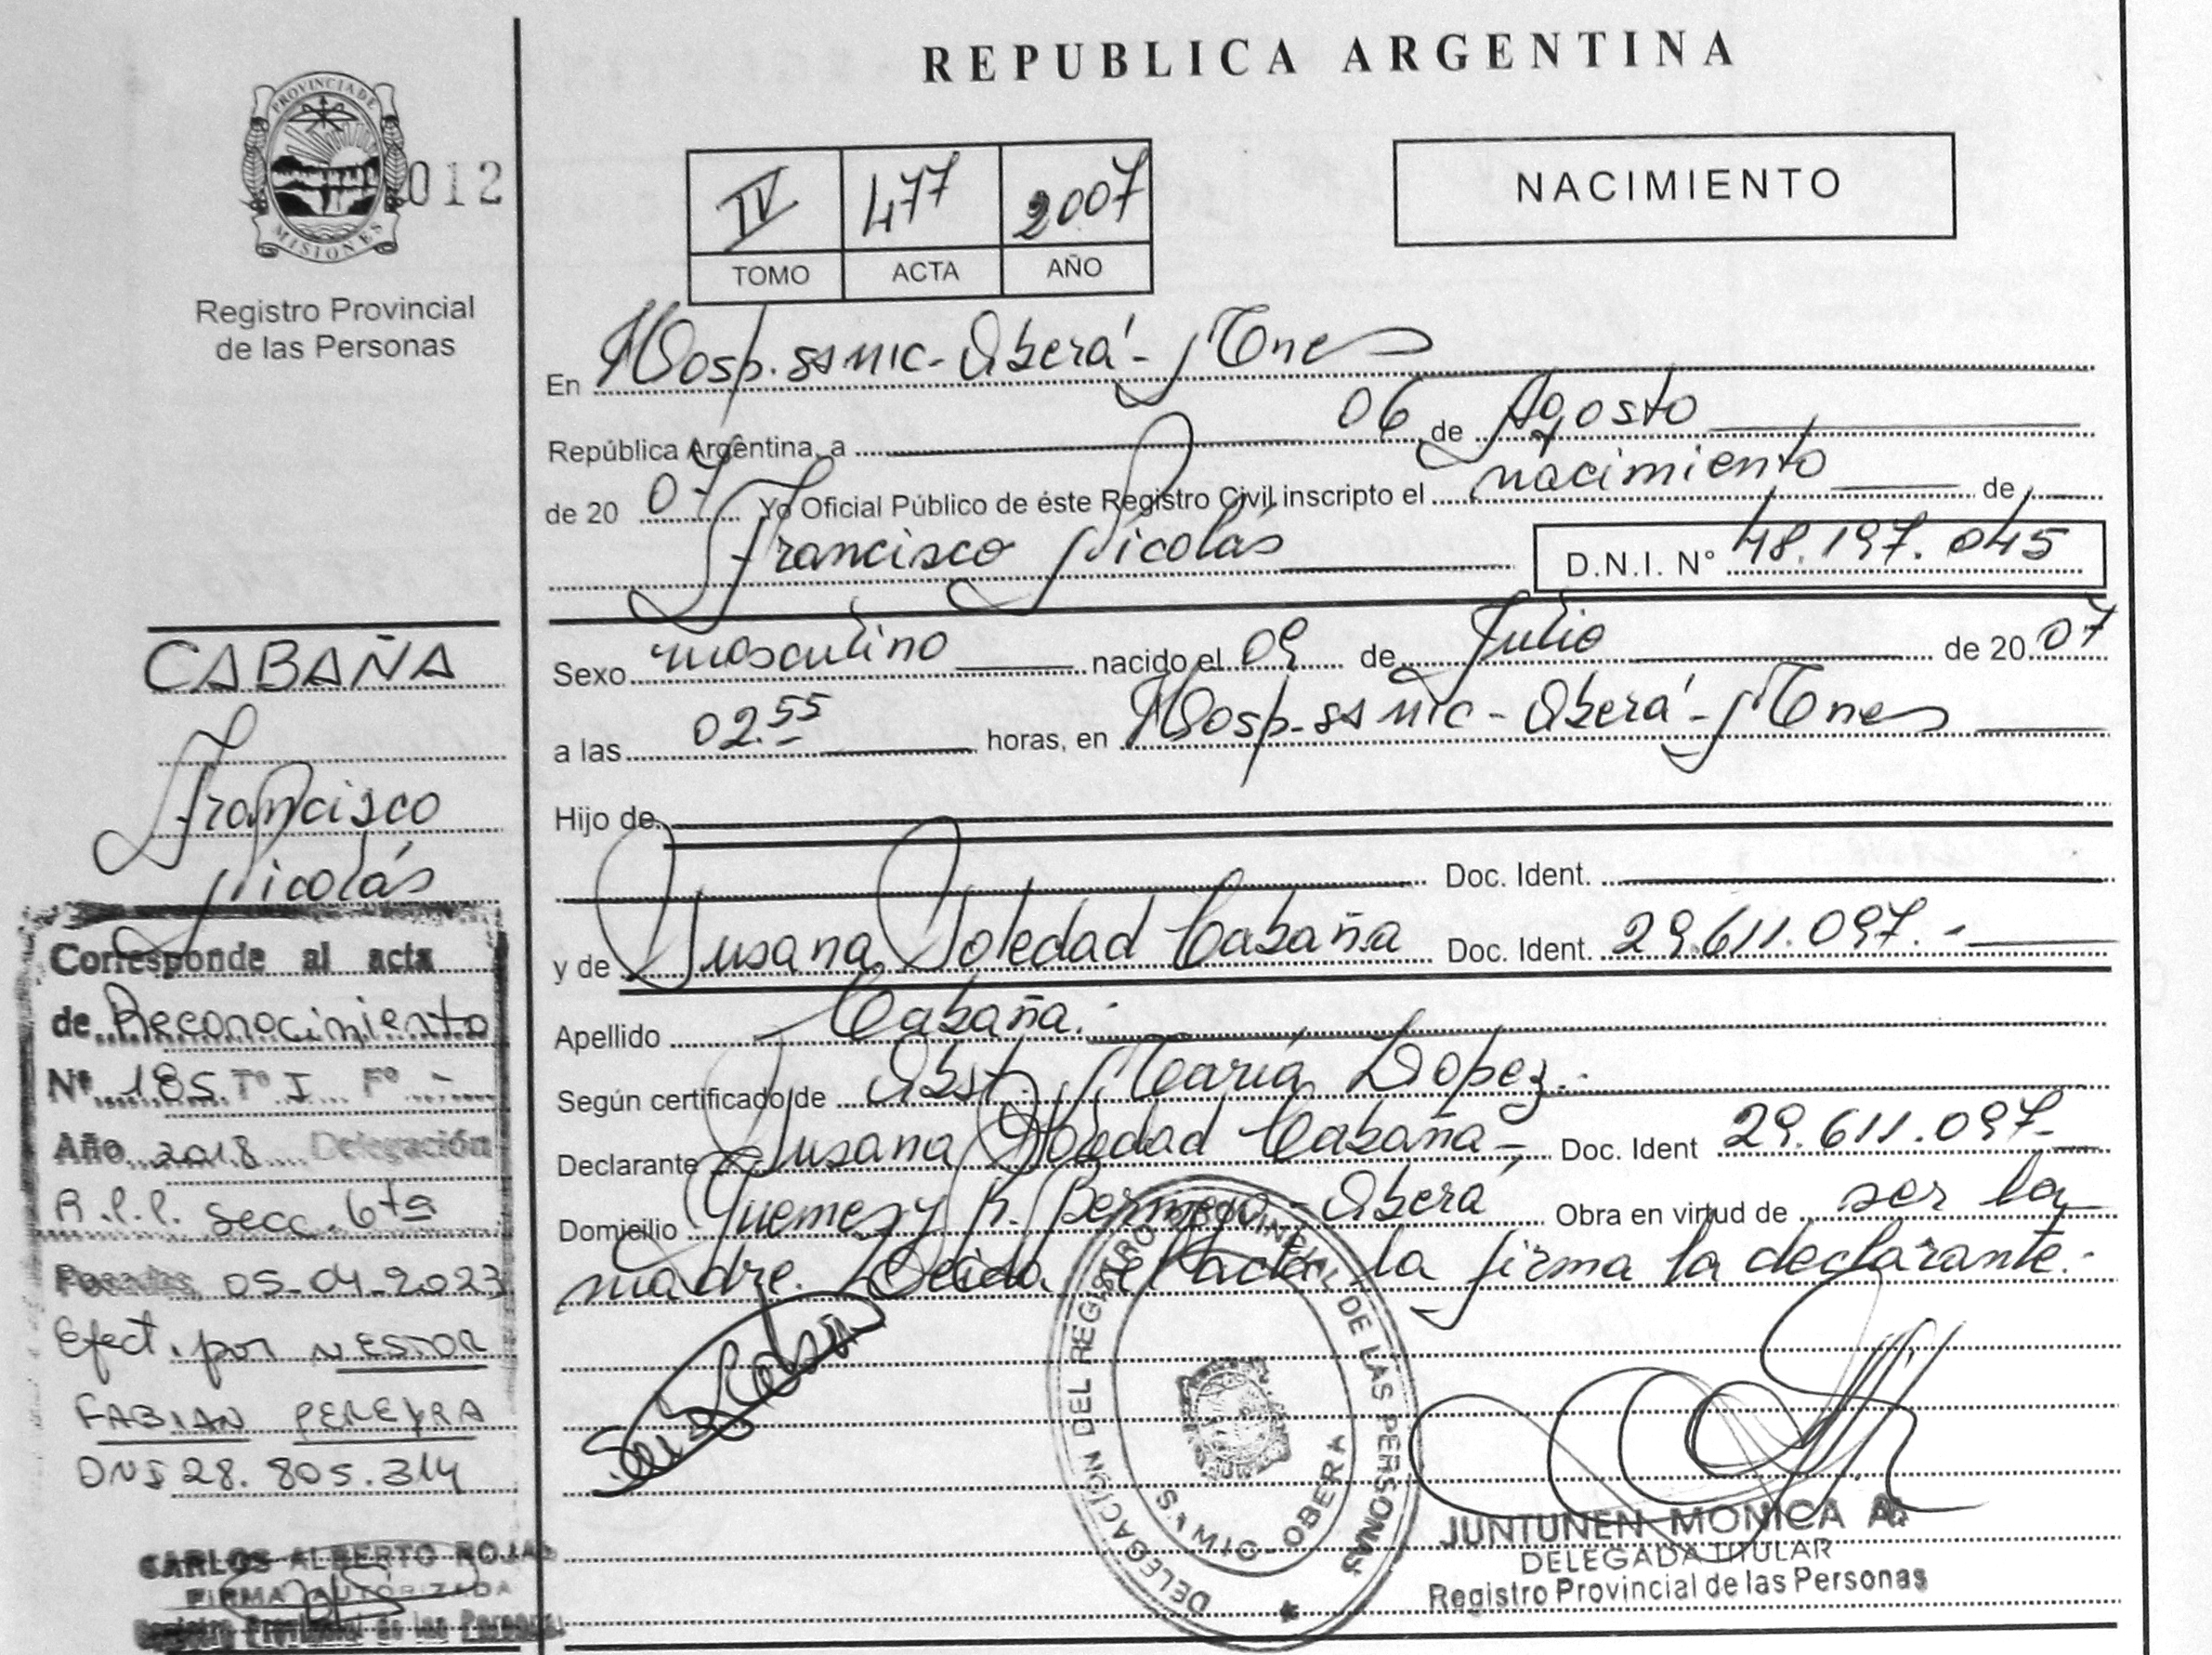 REPUBLICA ARGENTINA
PROVINCIA DE
MISIONES
012
Registro Provincial
de las Personas
IV 477 2007
TOMO ACTA AÑO
NACIMIENTO
En Hosp. SAMIC - Oberá - Mnes
República Argentina, a 06 de Agosto
de 2007 Yo Oficial Público de éste Registro Civil inscripto el nacimiento de
Francisco Nicolás D.N.I. N° 48.197.045
Sexo masculino nacido el 09 de Julio de 2007
a las 02.55 horas, en Hosp. SAMIC - Oberá - Mnes
Hijo de
Doc. Ident.
y de Susana Soledad Cabaña Doc. Ident. 29.611.097.-
Apellido Cabaña.-
Según certificado de Obst. María Lopez.-
Declarante Susana Soledad Cabaña Doc. Ident 29.611.097-
Domicilio Guemes y R. Bermejo - Oberá Obra en virtud de ser la
madre. Leida el acta la firma la declarante.-
DELEGACIÓN DEL REGISTRO PROVINCIAL DE LAS PERSONAS
OBERA
JUNTUNEN MONICA A.
DELEGADA TITULAR
Registro Provincial de las Personas
CABAÑA
Francisco
Nicolás
Corresponde al acta
de Reconocimiento
N° 185 T° I F° -
Año 2018 Delegación
R.P.P. Secc. 6ta
Posadas 05-04-2023
Efect. por NESTOR
FABIAN PEREYRA
DNI 28.805.314
CARLOS ALBERTO ROJAS
FIRMA AUTORIZADA
Registro Provincial de las Personas